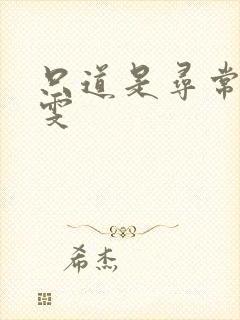 只道是寻常
雯
希杰